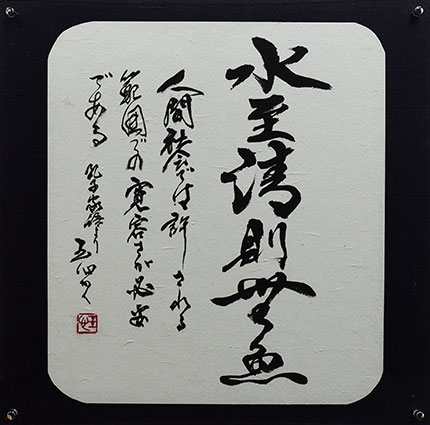 水至清則無魚
人間社会では許しされる
範囲での寛容さが必要
である 孔子家語より